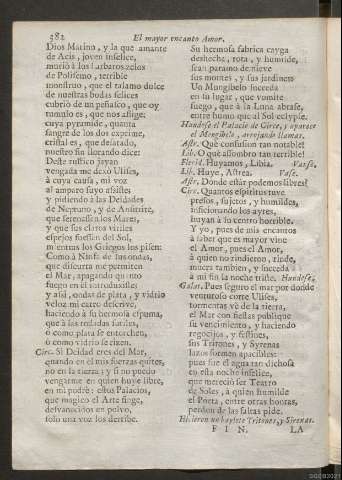 382 El mayor encanto Amor.
Dios Marino, y la que amante
de Acis, joven infelice,
murió à los barbaros zelos
de Polifemo, terrible
monstruo, que el talamo dulce
de nuestras bodas felices
cubrió de un peñasco, que oy
tumulo es, que nos aflige;
cuya pyramide, quanta
sangre de los dos exprime,
cristal es, que desatado,
nuestro fin llorando dice:
Deste rustico jayan
vengada me dexó Ulises,
à cuya causa, mi voz
al amparo suyo assiste;
y pidiendo à las Deidades
de Neptuno, y de Anfitrite,
que serenasse los Mares,
y que sus claros viriles
espejos fuessen del Sol,
mientras los Griegos los pisen:
Como à Ninfa de sus ondas,
que discurra me permiten
el Mar, apagando quanto
fuego en èl introduxisteis
y assi, ondas de plata, y vidrio
veloz mi carro descrive,
haciendo à su hermosa espuma,
que à las rodadas sutiles,
ò como plata se entorchen,
ò como vidrio se rizen.
Circ. Si Deidad eres del Mar,
quando en èl mis fuerzas quites,
no en la tierra; y si no puedo
vengarme en quien huye libre,
en mi podrè: estos Palacios,
que magico el Arte finge,
desvanecidos en polvo,
sola una voz los derribe.
Su hermosa fabrica cayga
deshecha, rota, y humilde,
sean paramo de nieve
sus montes, y sus jardines:
Un Mungibelo suceda
en su lugar, que vomite
fuego, que à la Luna abrase,
entre humo que al Sol eclypse.
Hundese el Palacio de Circe, y aparece
el Mungibelo, arrojando llamas.
Astr. Què confusion tan notable!
Lib. O què assombro tan terrible!
Flerid. Huyamos, Libia. Vase.
Lib. Huye, Astrea. Vase.
Astr. Donde estar podemos libres?
Circ. Quantos espiritus tuve
presos, sujetos, y humildes,
inficionando los ayres,
huyan à su centro horrible.
Y yo, pues de mis encantos
à saber que es mayor vine
el Amor, pues el Amor,
à quien no rindieron, rinde,
muera tambien, y suceda
à mi fin la noche triste. Hundese.
Galat. Pues seguro el mar por donde
venturoso corre Ulises,
tormentas vè de la tierra,
el Mar con fiestas publique
su vencimiento, y haciendo
regocijos, y festines,
sus Tritones, y Syrenas
lazos formen apacibles:
pues fue el agua tan dichosa
en esta noche infelice,
que mereciò ser Teatro
de Soles, à quien humilde
el Poeta, entre otras honras,
perdon de las faltas pide.
Hicieron un baylete Tritones, y Sirenas.
F I N. LA